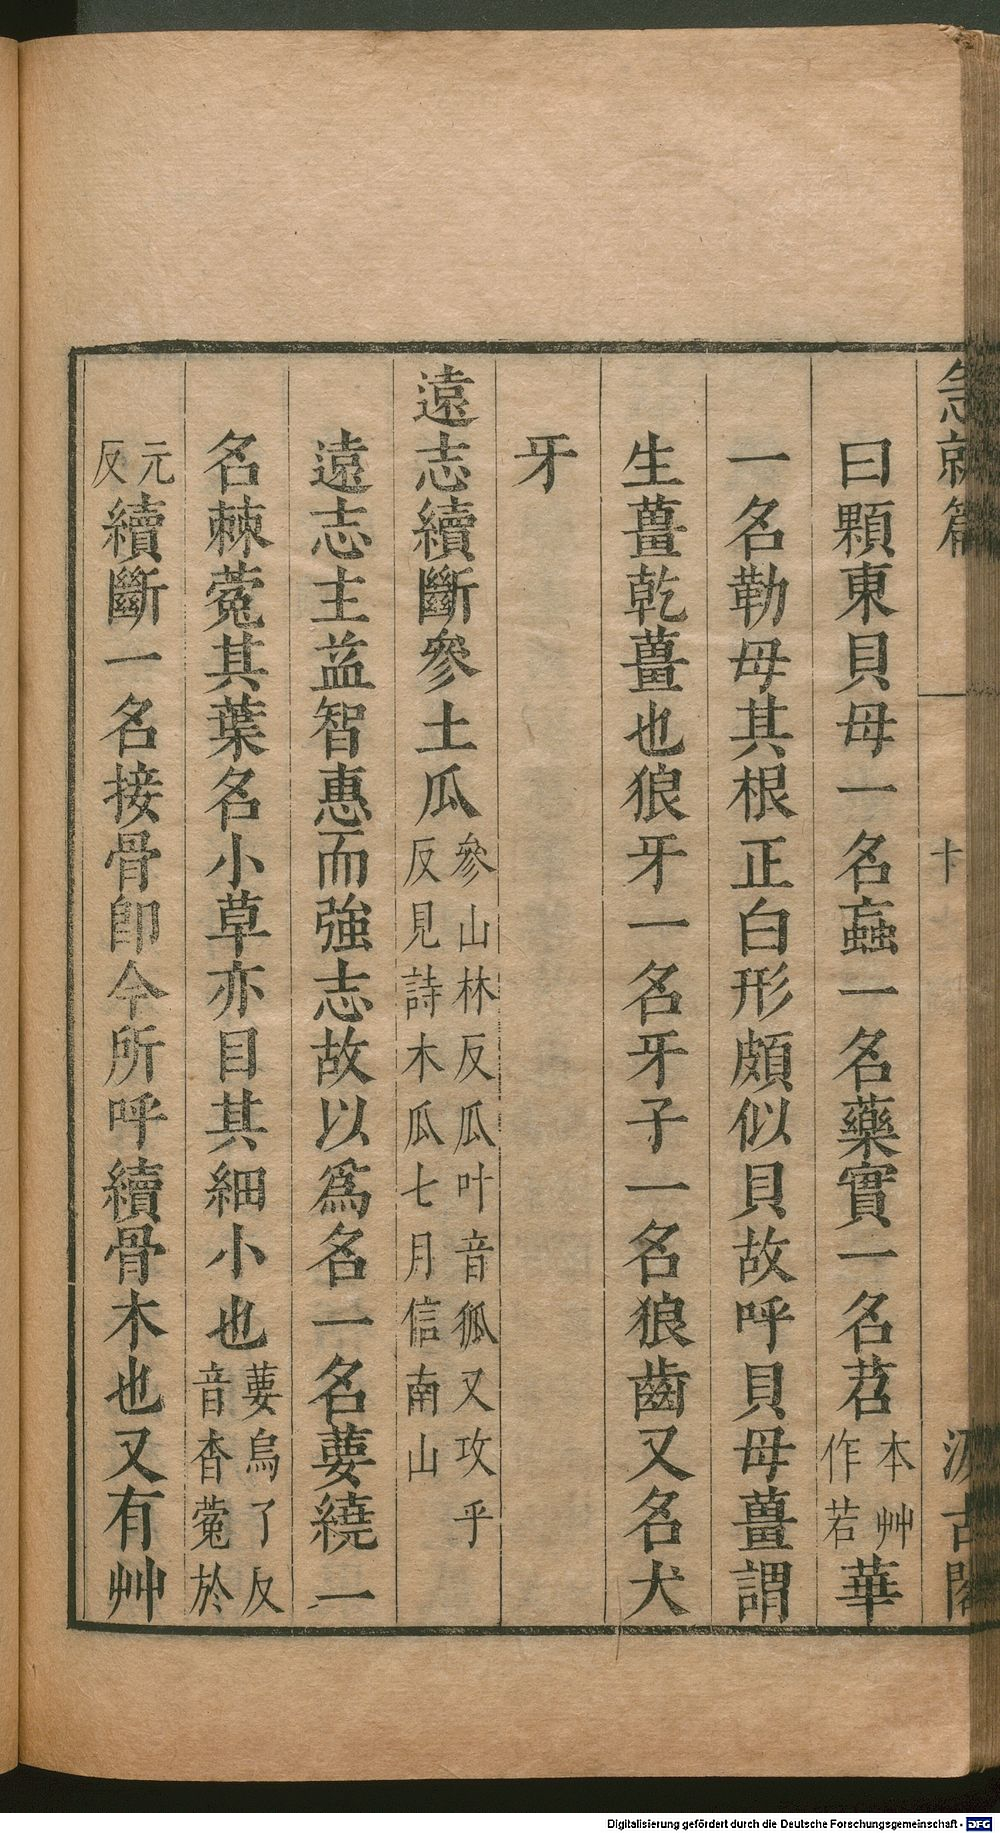 急就篇
汲古閣
曰顆東貝母一名蝱一名藥實一名苕本艸作若華
一名勒母其根正白形頗似貝故呼貝母薑謂
生薑乾薑也狼牙一名牙子一名狼齒又名犬
牙
遠志續斷參土瓜參山林反瓜叶音狐又攻乎反見詩木瓜七月信南山
遠志主益智惠而強志故以爲名一名葽繞一
名棘菀其葉名小草亦目其細小也葽烏了反音杳菀於
元反續斷一名接骨卽今所呼續骨木也又有艸
Digitalisierung gefördert durch die Deutsche Forschungsgemeinschaft - DFG